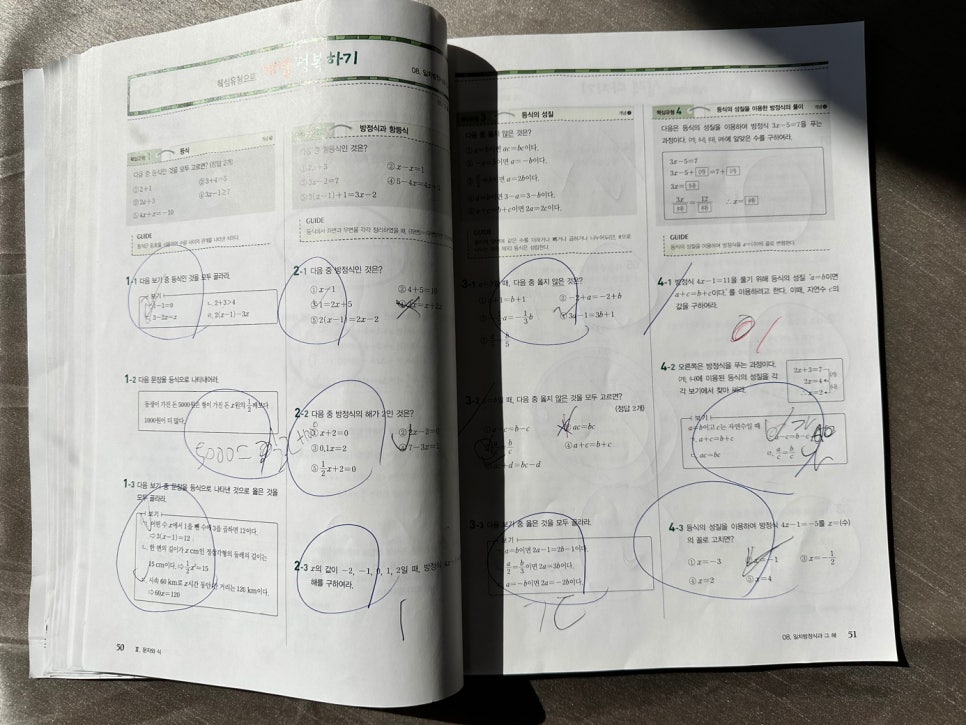 핵심유형으로 반복하기
08. 일차방정식
핵심유형 1 등식 개념
다음 중 등식인 것을 모두 고르면? (정답 2개)
①2+1 ②3+4=5
③2x+3 ④3x-1≥7
⑤4x+x=-10
GUIDE
1-1 다음 보기 중 등식인 것을 모두 골라라.
보기
-1=9 ㄴ. 2+3>4
ㄷ. 3-2x=x ㄹ. 2(x-1)-3x
1-2 다음 문장을 등식으로 나타내어라.
동생이 가진 돈 5000원은 형이 가진 돈 x원의 1/2배보다
1000원이 더 많다.
5000=
1-3 다음 보기 중 문장을 등식으로 나타낸 것으로 옳은 것을
모두 골라라.
보기
ㄱ. 어떤 수 x에서 1을 뺀 수에 3을 곱하면 12이다.
⇨3(x-1)=12
ㄴ. 한 변의 길이가 x cm인 정삼각형의 둘레의 길이는
15 cm이다. ⇨
ㄷ. 시속 60 km로 x시간 동안 간 거리는 120 km이다.
⇨60x=120
50 Ⅱ. 문자와 식
방정식과 항등식
항등식인 것은?
+3 ②x-x=1
3x-2=7 ④5-4x=4x+5
⑤3(x-1)+1=3x-2
GUIDE
2-1 다음 중 방정식인 것은?
①x-1 ②4+5=10
③1=2x+5
⑤2(x-1)=2x-2
2-2 다음 중 방정식의 해가 2인 것은?
①x+2=0 ②2x-2=0
③0.1x=2 ④7-3x=
⑤1/2x+2=0
2-3 x의 값이 -2, -1, 0, 1, 2일 때, 방정식
해를 구하여라.
1
3 등식의 성질 개념
다음 중 옳지 않은 것은?
이면 ac=bc이다.
이면 a=-b이다.
이면 a=2b이다.
이면 3-a=3-b이다.
⑤a+c=b+c이면 2a=2c이다.
GUIDE
3-1 a=b일 때, 다음 중 옳지 않은 것은?
+1=b+1 ②-2+a=-2+b
a=-1/3b ④3a-1=3b+1
3-2 일 때, 다음 중 옳지 않은 것을 모두 고르면?
(정답 2개)
-c=b-c ②ac=bc
④a+c=b+c
+d=bc-d
3-3 다음 보기 중 옳은 것을 모두 골라라.
보기
a=b이면 2a-1=2b-1이다.
a/2=b/3이면 2a=3b이다.
a=-b이면 2a=-2b이다.
핵심유형 4 등식의 성질을 이용한 방정식의 풀이 개념
다음은 등식의 성질을 이용하여 방정식 3x-5=7을 푸는
과정이다. ㈎, ㈏, ㈐, ㈑에 알맞은 수를 구하여라.
3x-5=7
3x-5+㈎=7+㈎
3x=㈏
3x/㈐=12/㈐ ∴ x=㈑
GUIDE
등식의 성질을 이용하여 방정식을 x=(수)의 꼴로 변형한다.
4-1 방정식 4x-1=11을 풀기 위해 등식의 성질 'a=b이면
a+c=b+c이다.'를 이용하려고 한다. 이때, 자연수 c의
값을 구하여라.
4-2 오른쪽은 방정식을 푸는 과정이다.
㈎, ㈏에 이용된 등식의 성질을 각
각 보기에서 찾아 써라.
2x+3=7 ㈎
2x=4 ㈏
x=2
보기
a=b이고 c는 자연수일 때
ㄱ. a+c=b+c ㄴ. a-c=b-c
ㄷ. ac=bc ㄹ. a/c=b/c
4-3 등식의 성질을 이용하여 방정식 4x-1=-5를 x=(수)
의 꼴로 고치면?
①x=-3 ②x=-1 ③x=-1/2
④x=2 ⑤x=4
08. 일차방정식과 그 해 51